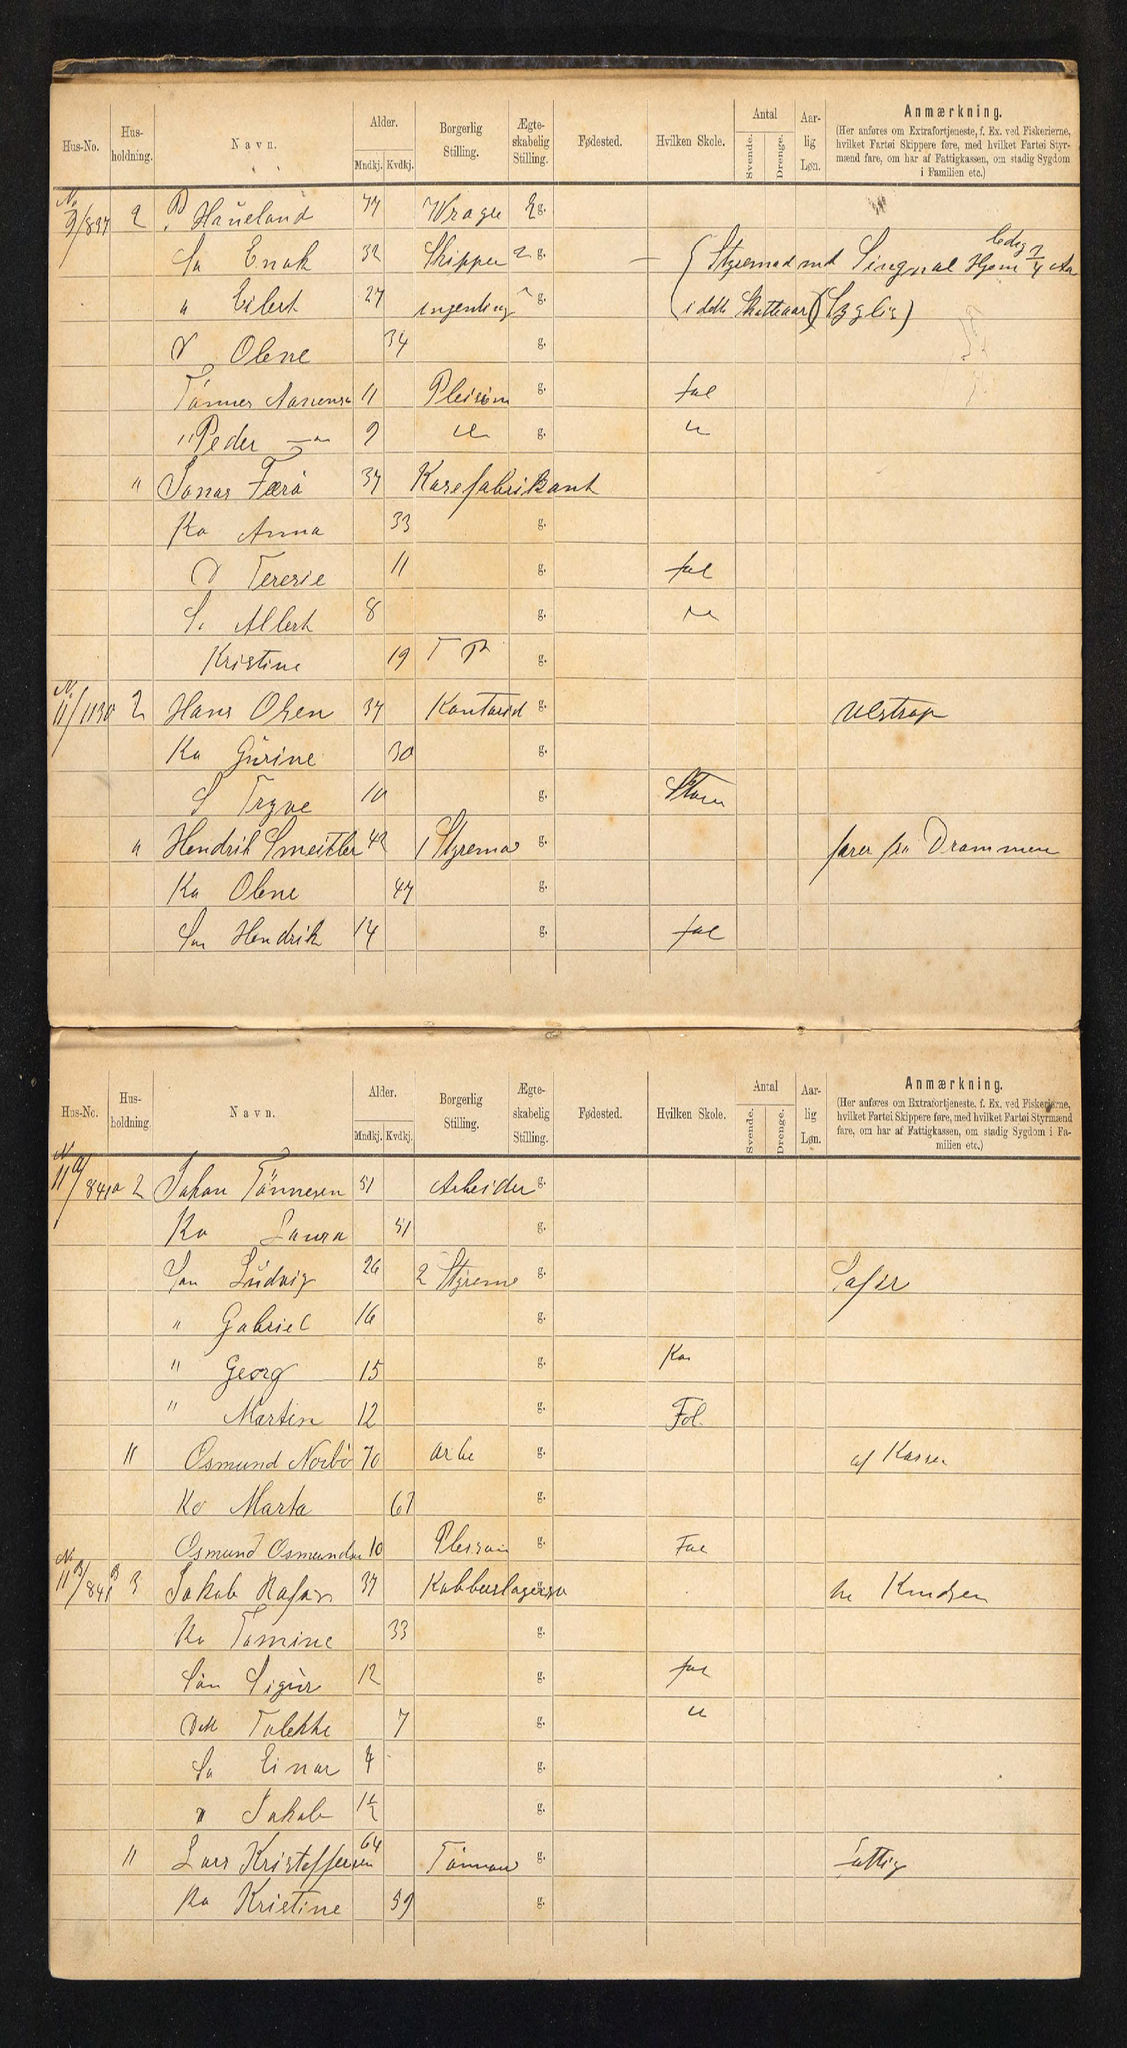 Hus-No. Hus-holdning. Navn. Alder. Mndkj. Kvdkj. Borgerlig Stilling. Ægte-skabelig Stilling. Fødested. Hvilken Skole. Antal Svende. Drenge. Aar-lig Løn. Anmærkning.
(Her anføres om Extrafortjeneste, f. Ex. ved Fiskerierne,
hvilket Fartøi Skippere føre, med hvilket Fartøi Styr-
mænd fare, om har af Fattigkassen, om stadig Sygdom
i Familien etc.)
No 9/837 2 P. Haueland 77 Vrager g.
Sø Enok 32 Skipper 2 g. — ledig
" Eilert 27 ingenting g. i dette Skatteaar (Syglig)
D Olene 34 g.
Tönnes 11 Pleisön g. fol
" Peder — 9 " g. "
" Jonas Færö 37 Karefabrikant
Ko Anna 33 g.
D Tererie 11 g. fol
S. Albert 8 g. "
Kristine 19 T P g.
No 11/1130 2 Hans Olsen 37 Kontorist g. Ulstrop
Ko Gurine 30 g.
S Trygve 10 g. Stor
" Hendrik Smeitler 42 1 Styrema g. farer fra Drammen
Ko Olene 47 g.
Søn Hendrik 14 g. fol
Hus-No. Hus-holdning. Navn. Alder. Mndkj. Kvdkj. Borgerlig Stilling. Ægte-skabelig Stilling. Fødested. Hvilken Skole. Antal Svende. Drenge. Aar-lig Løn. Anmærkning.
(Her anføres om Extrafortjeneste, f. Ex. ved Fiskerierne,
hvilket Fartøi Skippere føre, med hvilket Fartøi Styrmænd
fare, om har af Fattigkassen, om stadig Sygdom i Fa-
milien etc.)
No 11 a/841a 2 Johan Tönnesen 51 Arbeider g.
Ko Laura 51 g.
Søn Ludvig 26 2 Styrem g.
" Gabriel 16 g.
" Georg 15 g. Kon
" Martin 12 g. Fol.
" Osmund Norbö 70 arbe g. af Kassen
Ko Marta 67 g.
Osmund Osmundsen 10 Pleisön g. Fol
No 11 B/841 B 3 Jakob Rafa 37 Kobberslager g. Knudsen
Ko Tomine 33 g.
Sön Sigur 12 g. fol
Dtt Tolekke 7 g. "
Sø Einar 4 g.
" Jakob 1½ g.
" Lars Kristoffersen 64 Tönnar g. fattig
Ko Kristine 59 g.